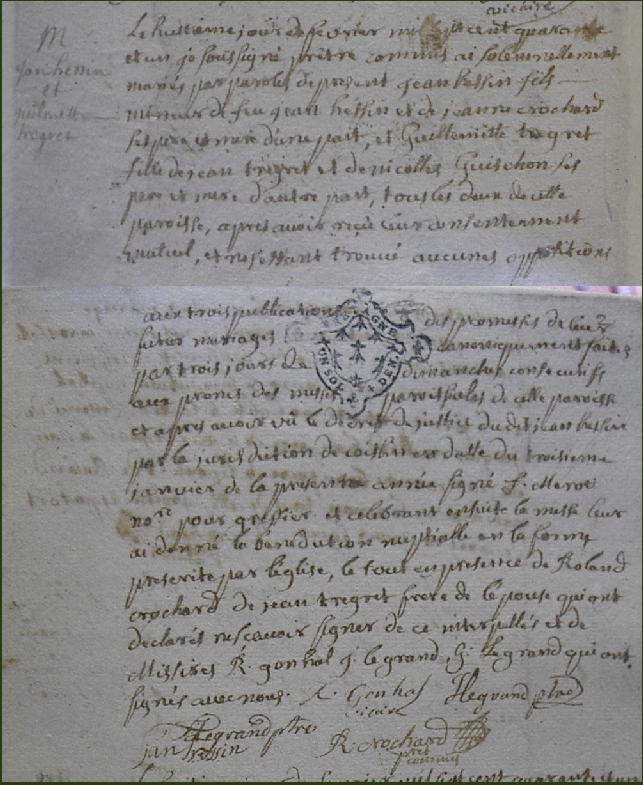 vicaire
M
jan hessin
et
guilmette
tregret
Le huittieme jour de fevrier mil sept cent quarante
et un je soussigné prêtre commis ai solemnellement
mariés par paroles de present jean hessin fils
mineur de feu jean hessin et de jeanne crochard
ses pere et mere d'une part, et Guillemitte tregret
fille de jean trégret et de nicolles Guischon ses
pere et mere d'autre part, tous les deux de cette
paroisse, apres avoir reçu leur consentement
mutuel, et ne s'ettant trouvé aucunes oppositions
aux trois publications des promesses de leurs
futur mariages canoniquement faites
par trois jours de dimanches consecutifs
aux prones des messes paroissiales de cette paroisse
et apres avoir vû le decret de justice dudit jean hessin
par la jurisdiction de coislin en datte du troisieme
janvier de la presente année signé
nore pour greffier et celebrant ensuite la messe leur
ai donné la benediction nuptialle en la forme
prescrite par l'eglise, le tout en presence de Roland
crochard de jean tregret frere de l'epouse qui ont
declarés ne scavoir signer de ce interpellés et de
Missires R. gonhal j. le grand, g. Legrand qui ont
signés avec nous. Gonhal Legrand ptre
vicaire
Legrand ptre
jan hessin R crochard
pret commis